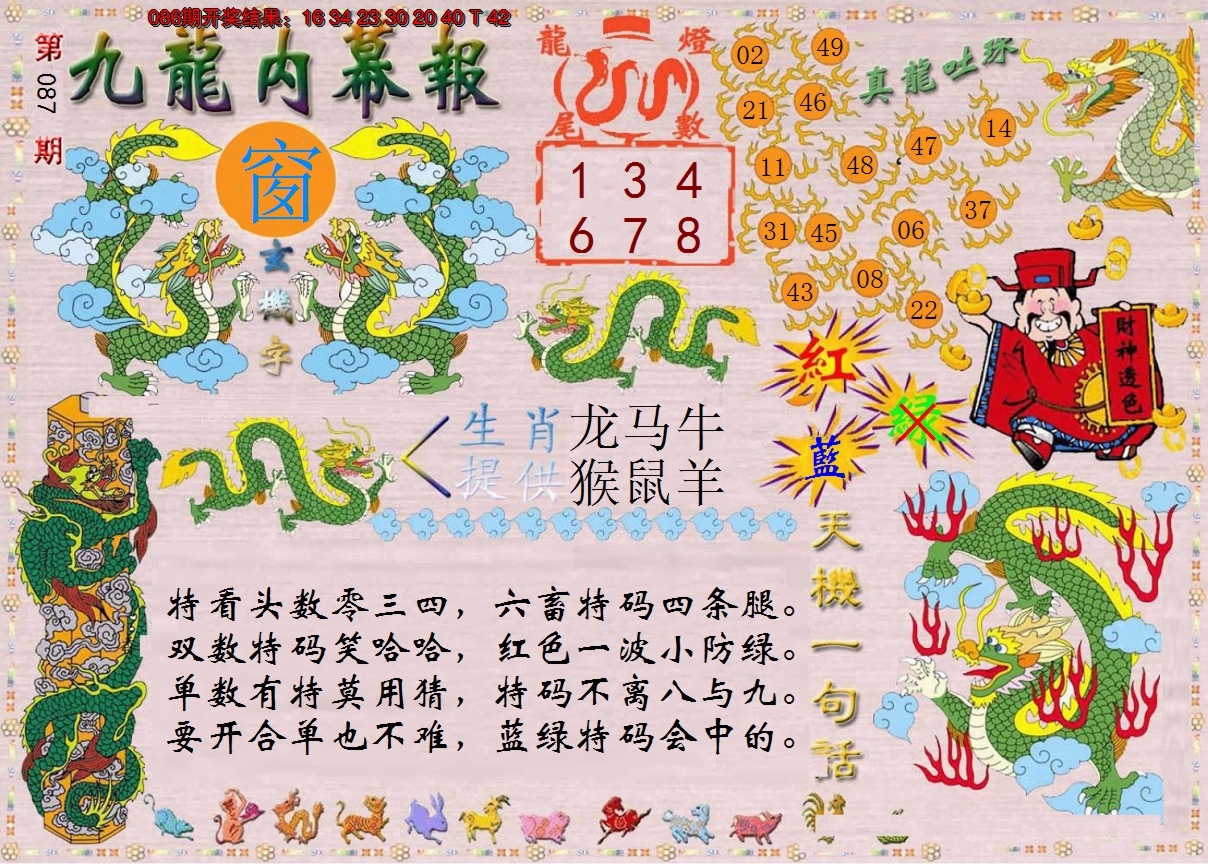 086期开奖结果：16 34 23 30 20 40 T 42
第
087
期
九龍内幕報
窗
玄
機
字
龍 燈
尾 數
1 3 4
6 7 8
真龍吐珠
02 49
21 46
11 48 47 14
31 45 06 37
43 08 22
紅
绿
藍
財神透色
生肖
提供
龙马牛
猴鼠羊
天機一句話
特看头数零三四，六畜特码四条腿。
双数特码笑哈哈，红色一波小防绿。
单数有特莫用猜，特码不离八与九。
要开合单也不难，蓝绿特码会中的。